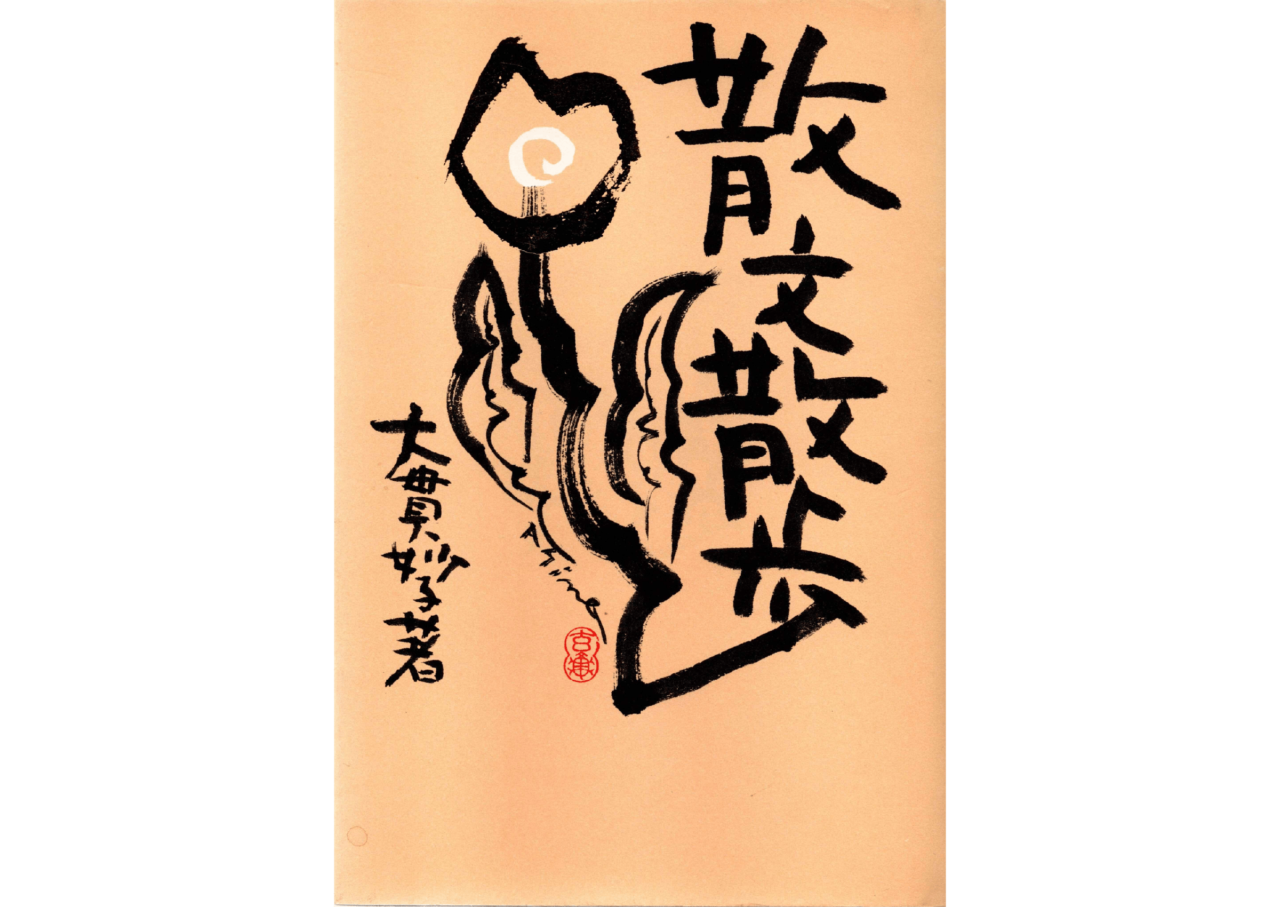 散文散歩
大貫妙子著